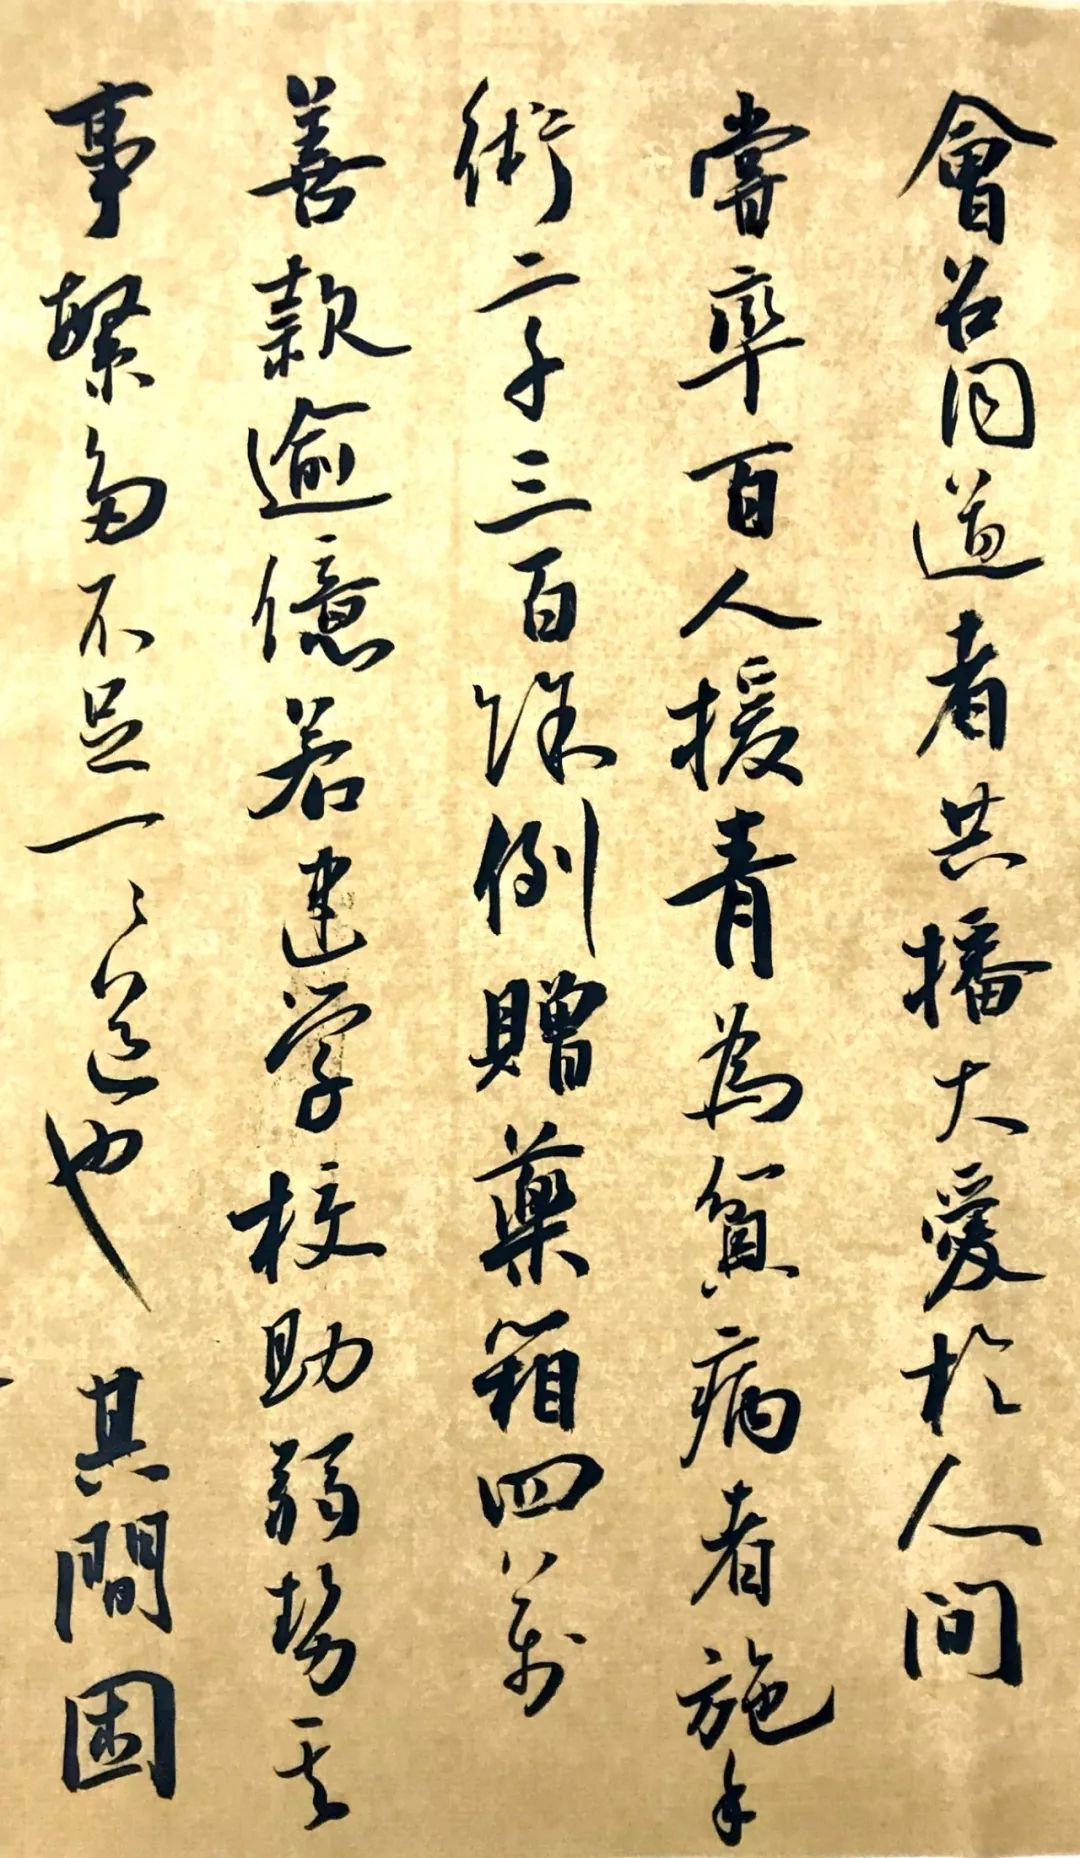 會召同道者共播大愛於人间
嘗率百人援青為貧病者施手
術二千三百餘例贈藥箱四萬
善款逾億若建學校助弱勢其
事繁多不足一一道也其間困